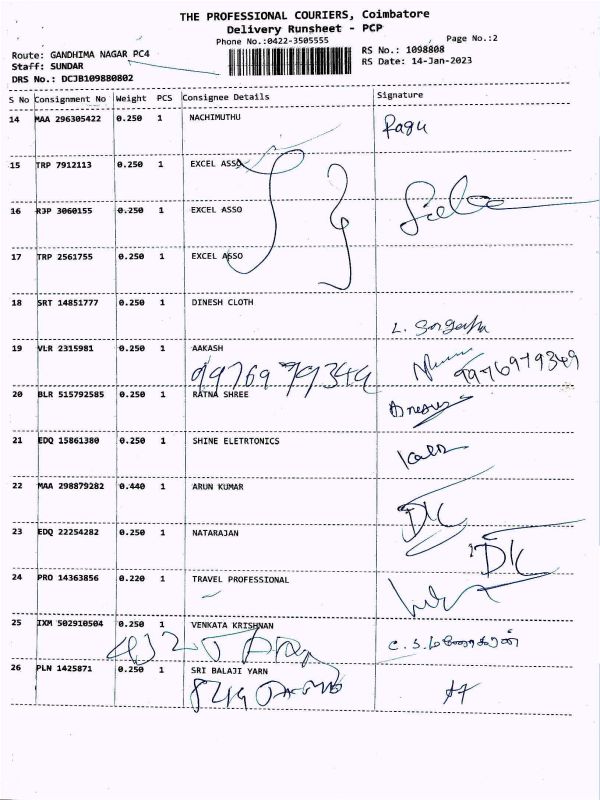 THE PROFESSIONAL COURIERS, Coimbatore
Delivery Runsheet - PCP
Phone No.:0422-3505555
Page No.:2
Route: GANDHIMA NAGAR PC4
RS No.: 1098808
Staff: SUNDAR
RS Date: 14-Jan-2023
DRS No.: DCJB109880802
S No Consignment No Weight PCS Consignee Details Signature
14 MAA 296305422 0.250 1 NACHIMUTHU Ragu
15 TRP 7912113 0.250 1 EXCEL ASSO
16 RJP 3060155 0.250 1 EXCEL ASSO
17 TRP 2561755 0.250 1 EXCEL ASSO
18 SRT 14851777 0.250 1 DINESH CLOTH
19 VLR 2315981 0.250 1 AAKASH
9976979349 9976979349
20 BLR 515792585 0.250 1 RATNA SHREE
21 EDQ 15861380 0.250 1 SHINE ELETRTONICS
22 MAA 298879282 0.440 1 ARUN KUMAR DK
23 EDQ 22254282 0.250 1 NATARAJAN DK
24 PRO 14363856 0.220 1 TRAVEL PROFESSIONAL
25 IXM 502910504 0.250 1 VENKATA KRISHNAN
26 PLN 1425871 0.250 1 SRI BALAJI YARN